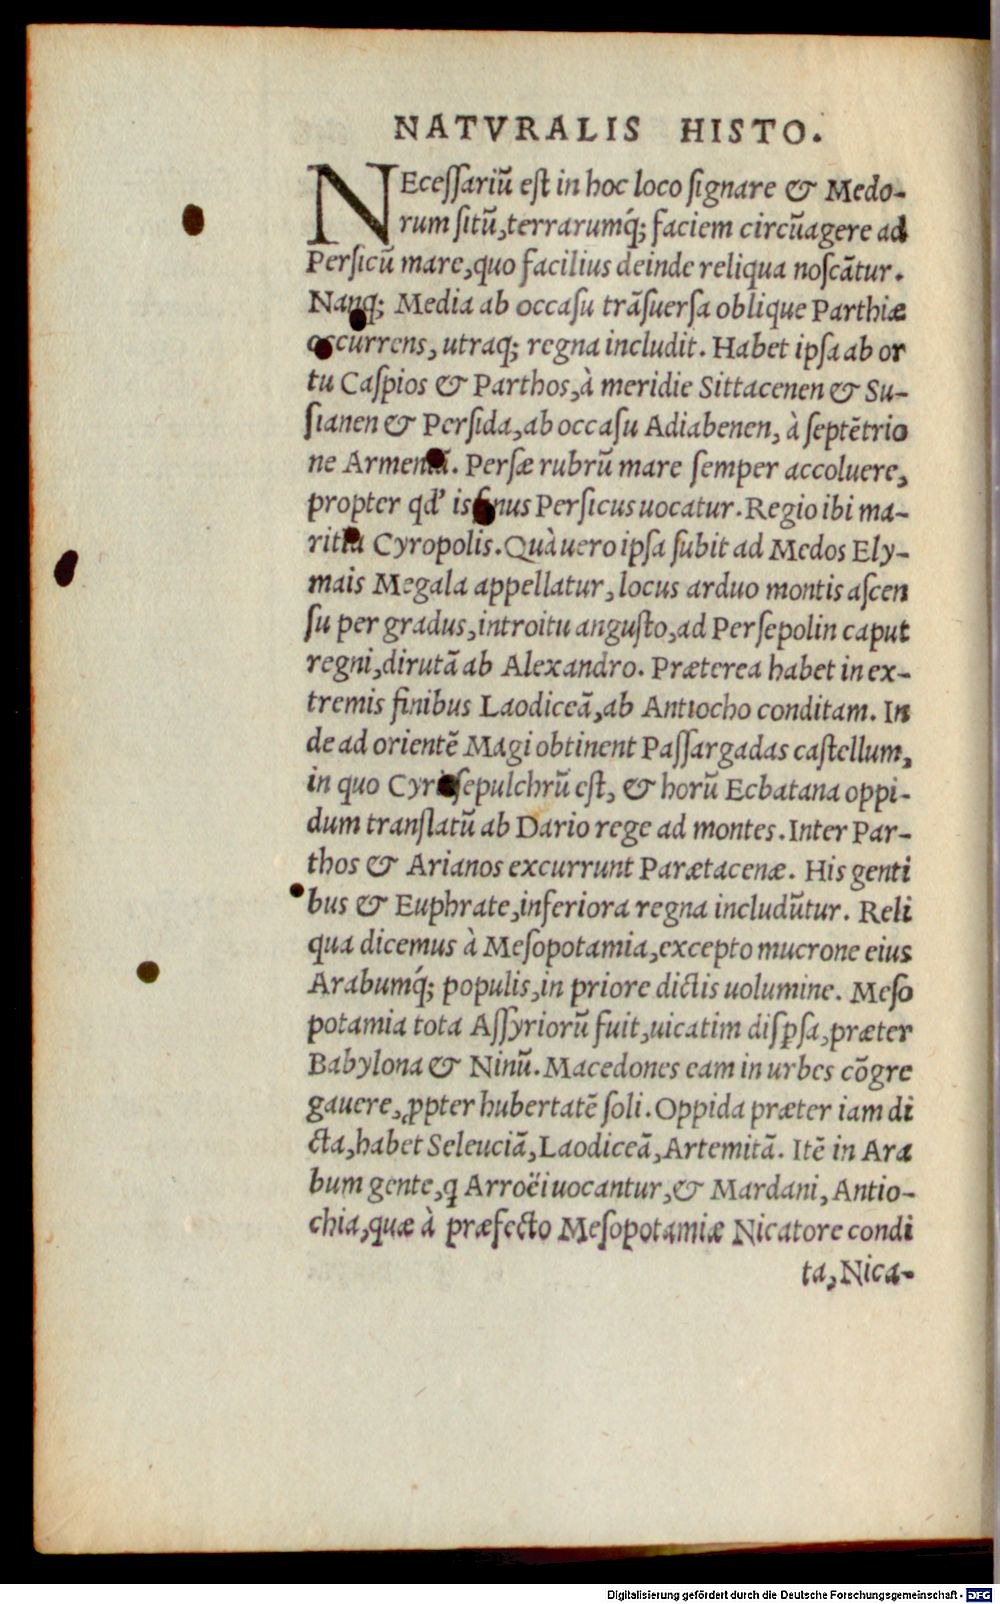 NATVRALIS HISTO.
NEceſſariũ eſt in hoc loco ſignare & Medo-
rum ſitũ, terrarumq́; faciem circũagere ad
Perſicũ mare, quo facilius deinde reliqua noſcãtur.
Nanq; Media ab occaſu trãſuerſa oblique Parthiæ
occurrens, utraq; regna includit. Habet ipſa ab or
tu Caſpios & Parthos, à meridie Sittacenen & Su-
ſianen & Perſida, ab occaſu Adiabenen, à ſeptẽtrio
ne Armeniã. Perſæ rubrũ mare ſemper accoluere,
propter qd' is ſinus Perſicus uocatur. Regio ibi ma-
ritia Cyropolis. Quà uero ipſa ſubit ad Medos Ely-
mais Megala appellatur, locus arduo montis aſcen
ſu per gradus, introitu anguſto, ad Perſepolin caput
regni, dirutã ab Alexandro. Præterea habet in ex-
tremis finibus Laodiceã, ab Antiocho conditam. In
de ad orientẽ Magi obtinent Paſſargadas caſtellum,
in quo Cyri ſepulchrũ eſt, & horũ Ecbatana oppi-
dum tranſlatũ ab Dario rege ad montes. Inter Par-
thos & Arianos excurrunt Parætacenæ. His genti
bus & Euphrate, inferiora regna includũtur. Reli
qua dicemus à Meſopotamia, excepto mucrone eius
Arabumq́; populis, in priore dictis uolumine. Meſo
potamia tota Aſſyriorũ fuit, uicatim diſꝑſa, præter
Babylona & Ninũ. Macedones eam in urbes cõgre
gauere, ꝓpter hubertatẽ ſoli. Oppida præter iam di
cta, habet Seleuciã, Laodiceã, Artemitã. Itẽ in Ara
bum gente, q Arroëi uocantur, & Mardani, Antio-
chia, quæ à præfecto Meſopotamiæ Nicatore condi
ta, Nica-
Digitalisierung gefördert durch die Deutsche Forschungsgemeinschaft - DFG